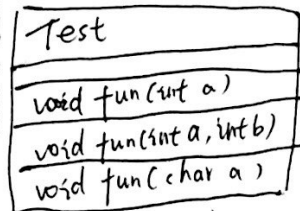 Test
void fun(int a)
void fun(int a, int b)
void fun(char a)